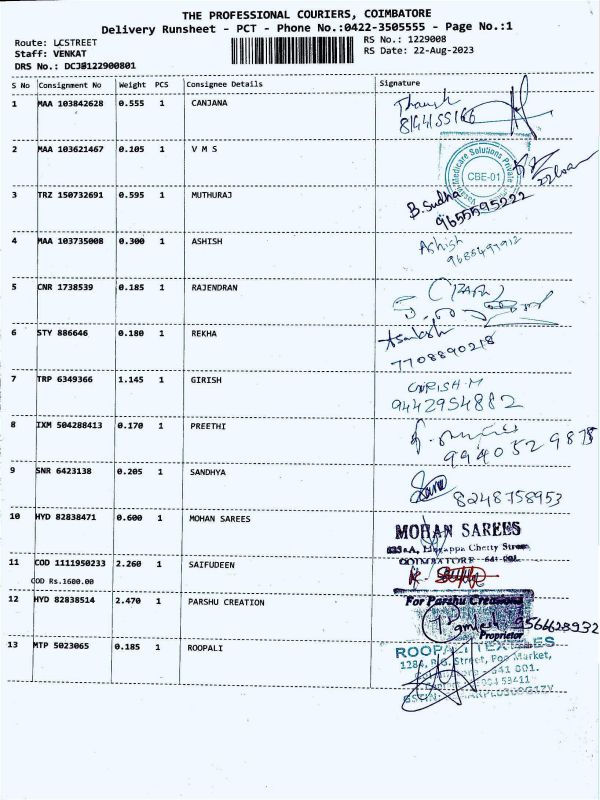 THE PROFESSIONAL COURIERS, COIMBATORE
Delivery Runsheet - PCT - Phone No.:0422-3505555 - Page No.:1
Route: LCSTREET
Staff: VENKAT
DRS No.: DCJB122900801
RS No.: 1229008
RS Date: 22-Aug-2023
S No Consignment No Weight PCS Consignee Details Signature
1 MAA 103842628 0.555 1 CANJANA
2 MAA 103621467 0.105 1 V M S
Medicare Solutions Private
CBE-01
3 TRZ 150732691 0.595 1 MUTHURAJ B. Sudha
9655595222
4 MAA 103735008 0.300 1 ASHISH Ashish
5 CNR 1738539 0.185 1 RAJENDRAN
6 STY 886646 0.180 1 REKHA
7708890218
7 TRP 6349366 1.145 1 GIRISH GIRISH.M
9442954882
8 IXM 504288413 0.170 1 PREETHI
9 SNR 6423138 0.205 1 SANDHYA
8248758953
10 HYD 82838471 0.600 1 MOHAN SAREES MOHAN SAREES
COIMBATORE
11 COD 1111950233 2.260 1 SAIFUDEEN
COD Rs.1600.00
12 HYD 82838514 2.470 1 PARSHU CREATION For Parshu Creations
Proprietor
13 MTP 5023065 0.185 1 ROOPALI ROOPALI TEXTILES
Market,